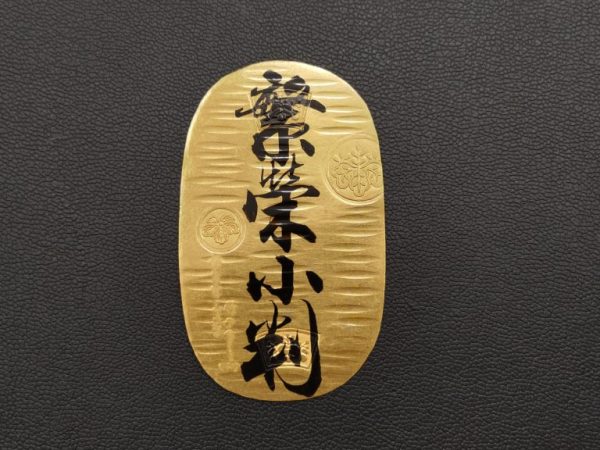 繁栄小判